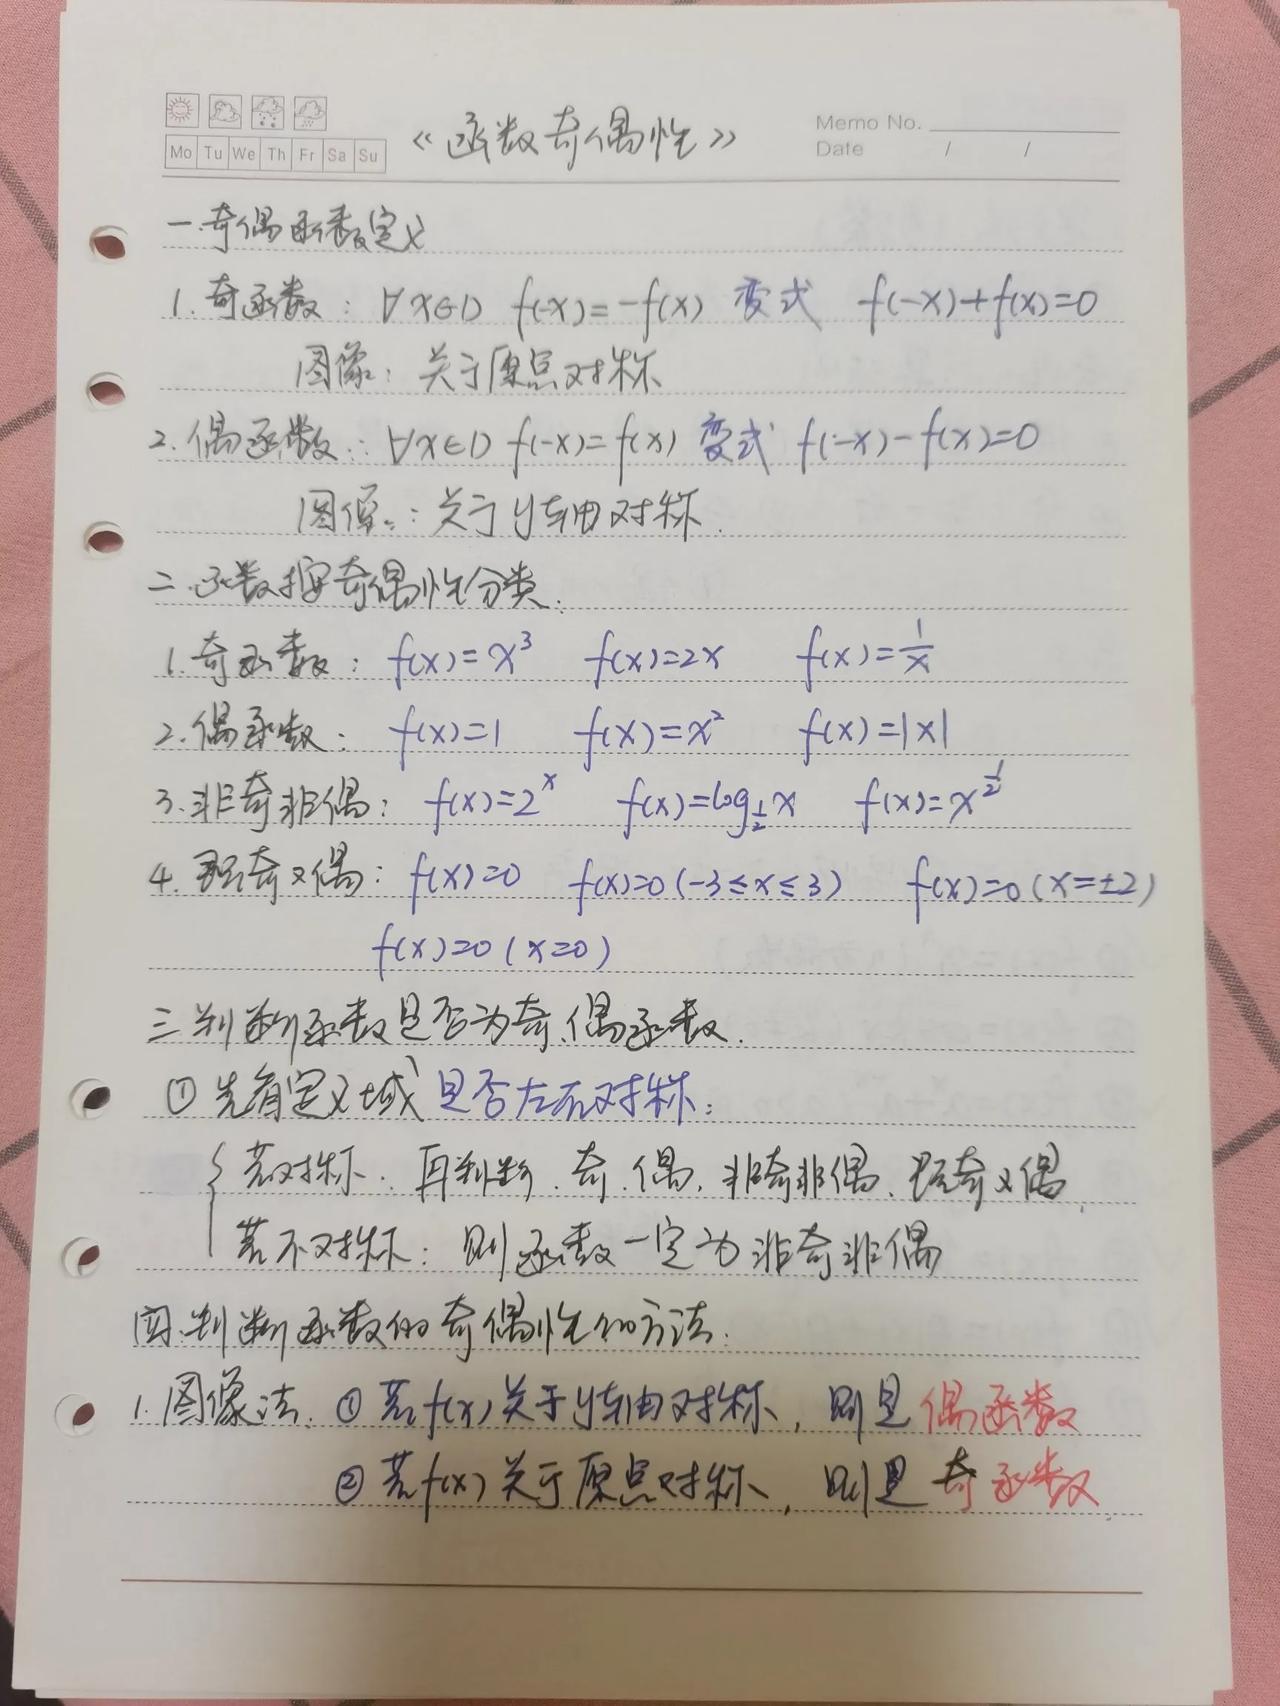 《函数奇偶性》
Memo No.
Date / /
Mo Tu We Th Fr Sa Su
一.奇偶函数定义
1.奇函数：∀x∈D f(-x)=-f(x) 变式 f(-x)+f(x)=0
图像：关于原点对称
2.偶函数：∀x∈D f(-x)=f(x) 变式 f(-x)-f(x)=0
图像：关于y轴由对称.
二.函数按奇偶性分类.
1.奇函数：f(x)=x³ f(x)=2x f(x)=1/x
2.偶函数：f(x)=1 f(x)=x² f(x)=|x|
3.非奇非偶：f(x)=2^x f(x)=log_{1/2}x f(x)=x^{1/2}
4.既奇又偶：f(x)=0 f(x)=0(-3≤x≤3) f(x)=0(x=±2)
f(x)=0(x=0)
三.判断函数是否为奇、偶函数.
①先看定义域是否左右对称：
若对称：再判断、奇、偶、非奇非偶、既奇又偶.
若不对称：则函数一定为非奇非偶
四.判断函数的奇偶性的方法：
1.图像法.①若f(x)关于y轴对称，则是偶函数
②若f(x)关于原点对称，则是奇函数.